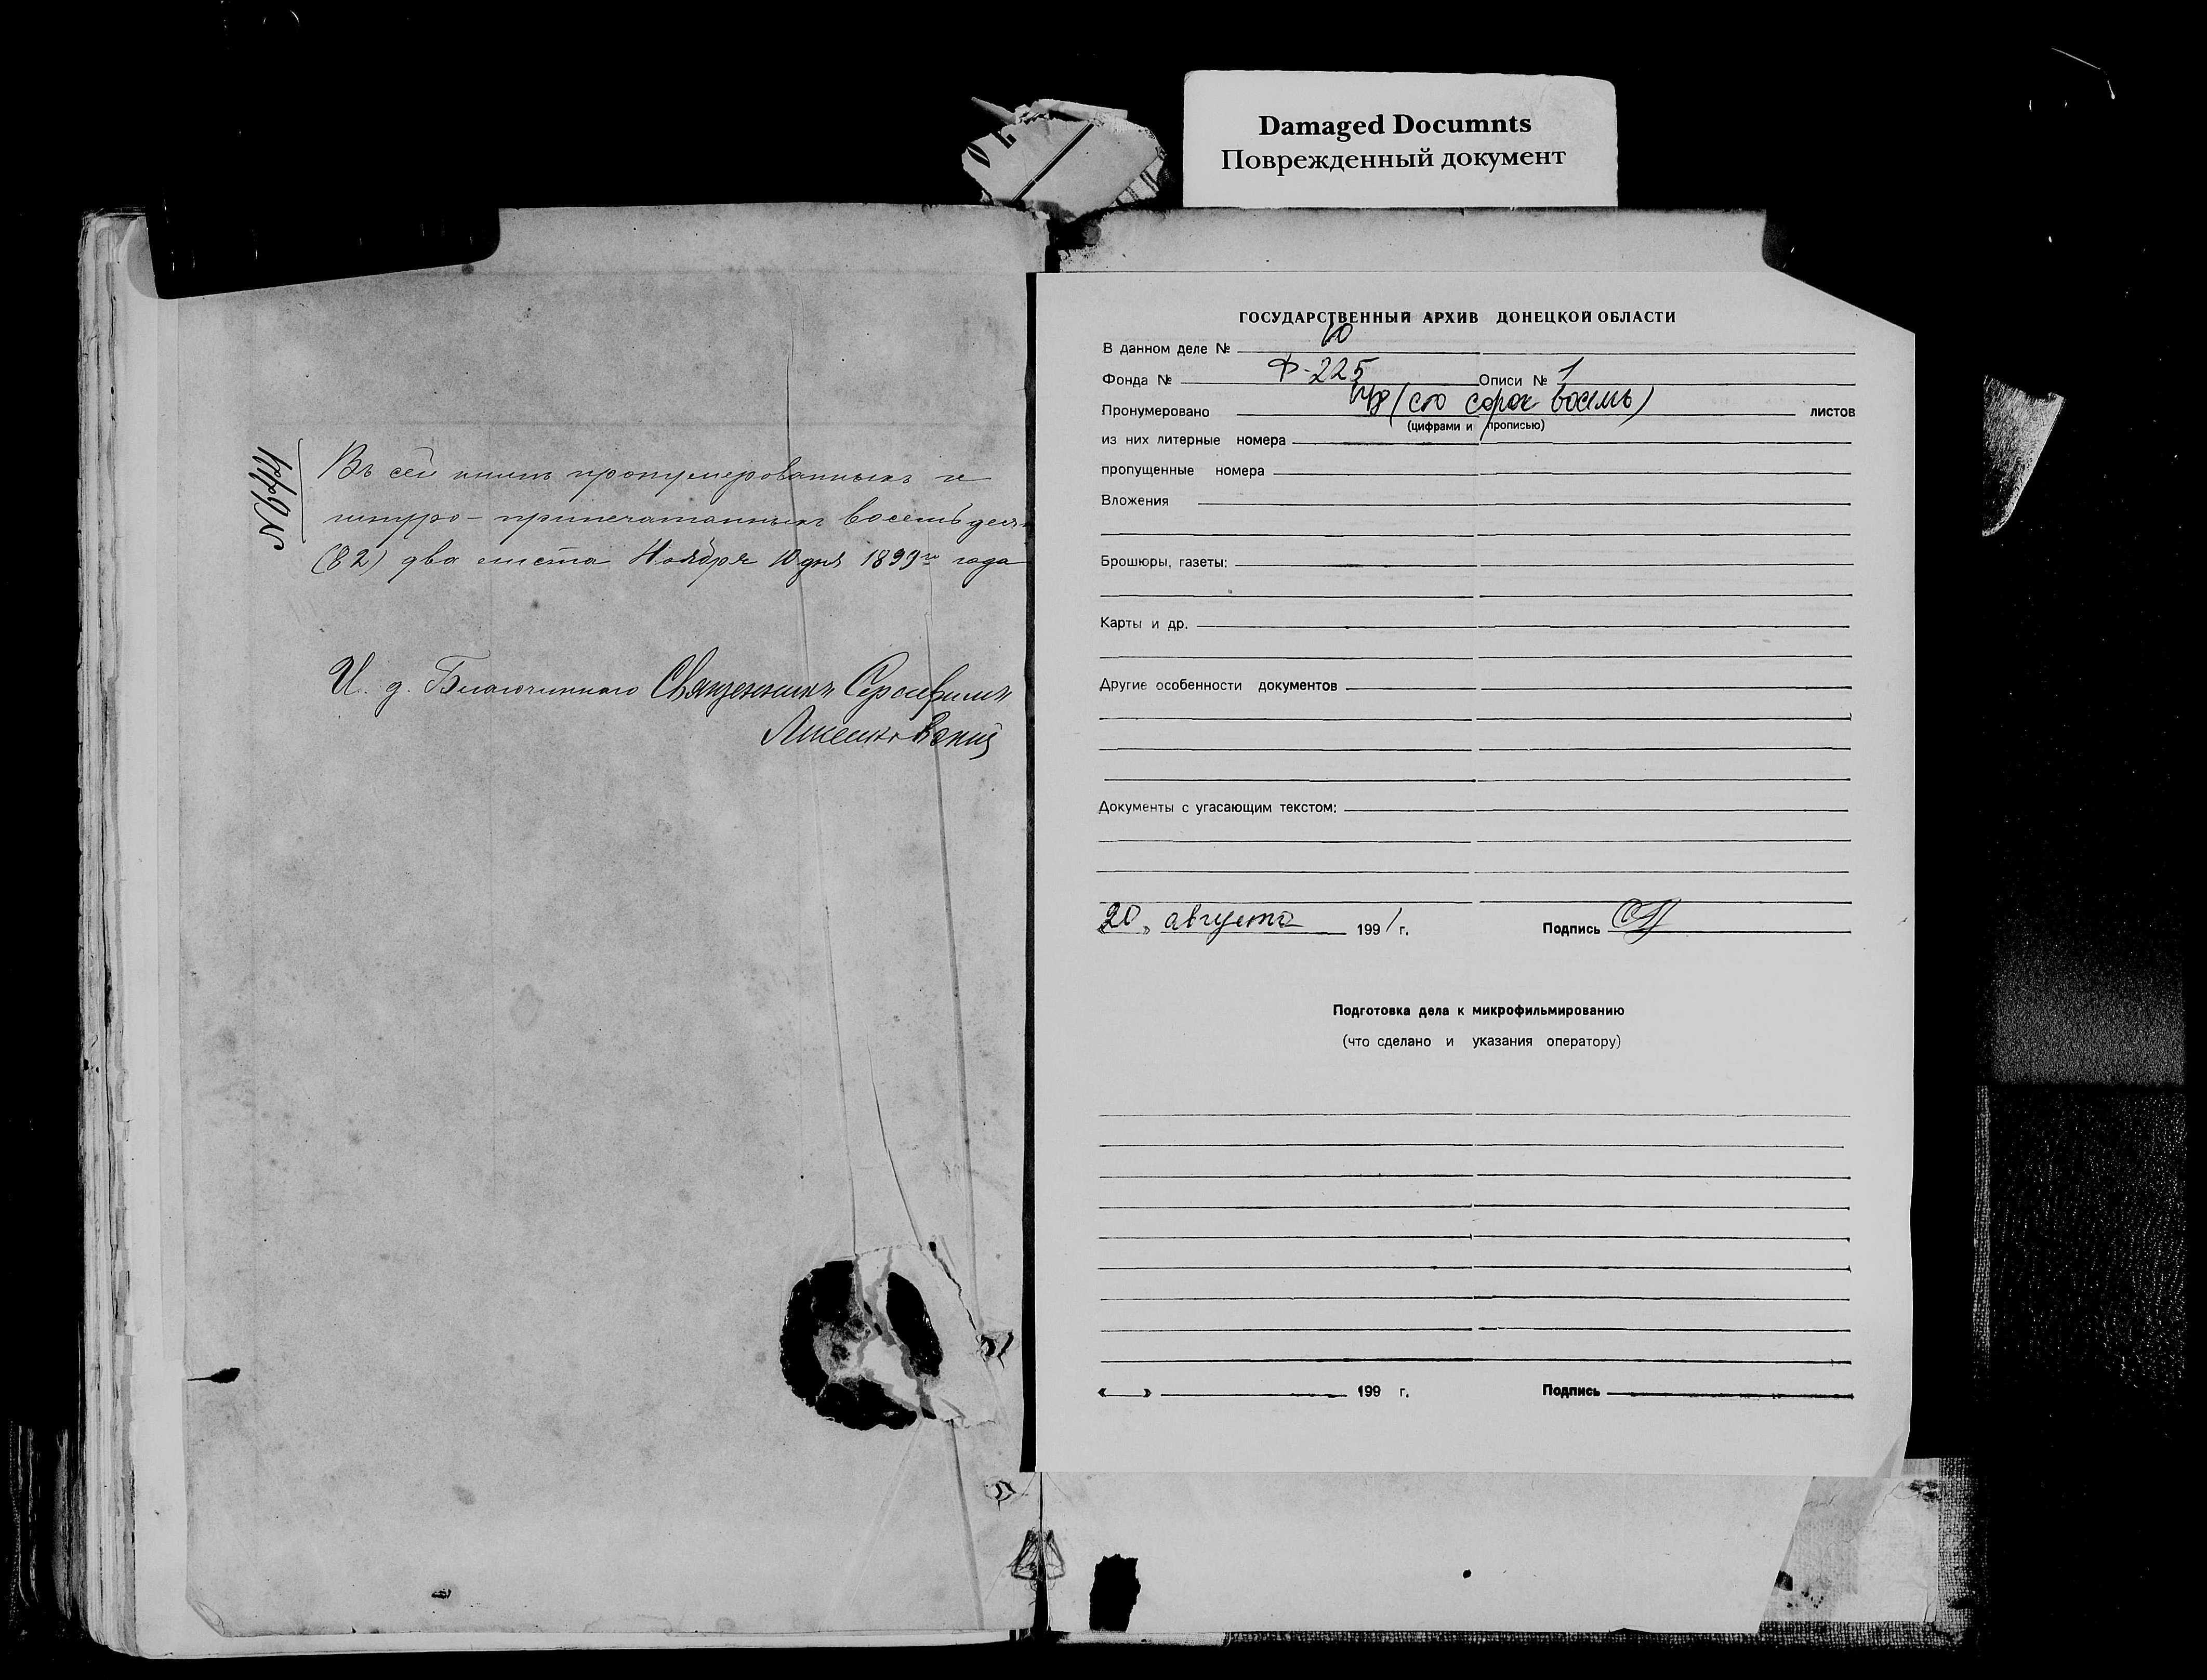 Damaged Documnts
Поврежденный документ
№ 644
Въ сей книгѣ пронумерованныхъ и
шнуро-припечатанныхъ восемьдеся
(82) два листа Ноября 10 дня 1899го года
И. д. Благочиннаго Священникъ Серапiонъ
ГОСУДАРСТВЕННЫЙ АРХИВ ДОНЕЦКОЙ ОБЛАСТИ
В данном деле № 10
Фонда № Ф-225 Описи № 1
Пронумеровано 148 (сто сорок восемь) листов
(цифрами и прописью)
из них литерные номера
пропущенные номера
Вложения
Брошюры, газеты:
Карты и др.
Другие особенности документов
Документы с угасающим текстом:
«20» августа 1991 г. Подпись
Подготовка дела к микрофильмированию
(что сделано и указания оператору)
« » 199 г. Подпись